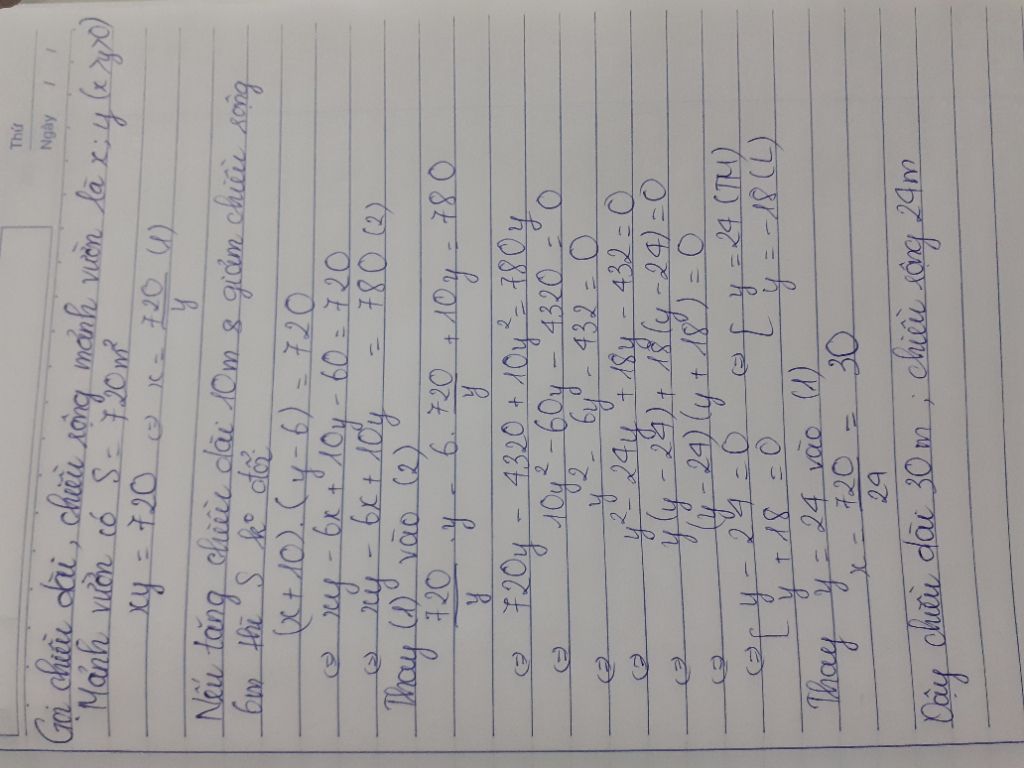 Thứ
Ngày / /
Gọi chiều dài, chiều rộng mảnh vườn là x; y (x>y>0)
Mảnh vườn có S = 720m²
xy = 720 ⇔ x = 720/y (1)
Nếu tăng chiều dài 10m & giảm chiều rộng
6m thì S k° đổi
(x+10).(y-6) = 720
⇔ xy - 6x + 10y - 60 = 720
⇔ xy - 6x + 10y = 780 (2)
Thay (1) vào (2)
720/y . y - 6. 720/y + 10y = 780
⇔ 720y - 4320 + 10y² = 780y
⇔ 10y² - 60y - 4320 = 0
⇔ y² - 6y - 432 = 0
⇔ y² - 24y + 18y - 432 = 0
⇔ y(y - 24) + 18(y - 24) = 0
⇔ (y - 24)(y + 18) = 0
⇔ [ y - 24 = 0 ⇔ [ y = 24 (TM)
y + 18 = 0 y = -18 (L)
Thay y = 24 vào (1)
x = 720/24 = 30
Vậy chiều dài 30m; chiều rộng 24m